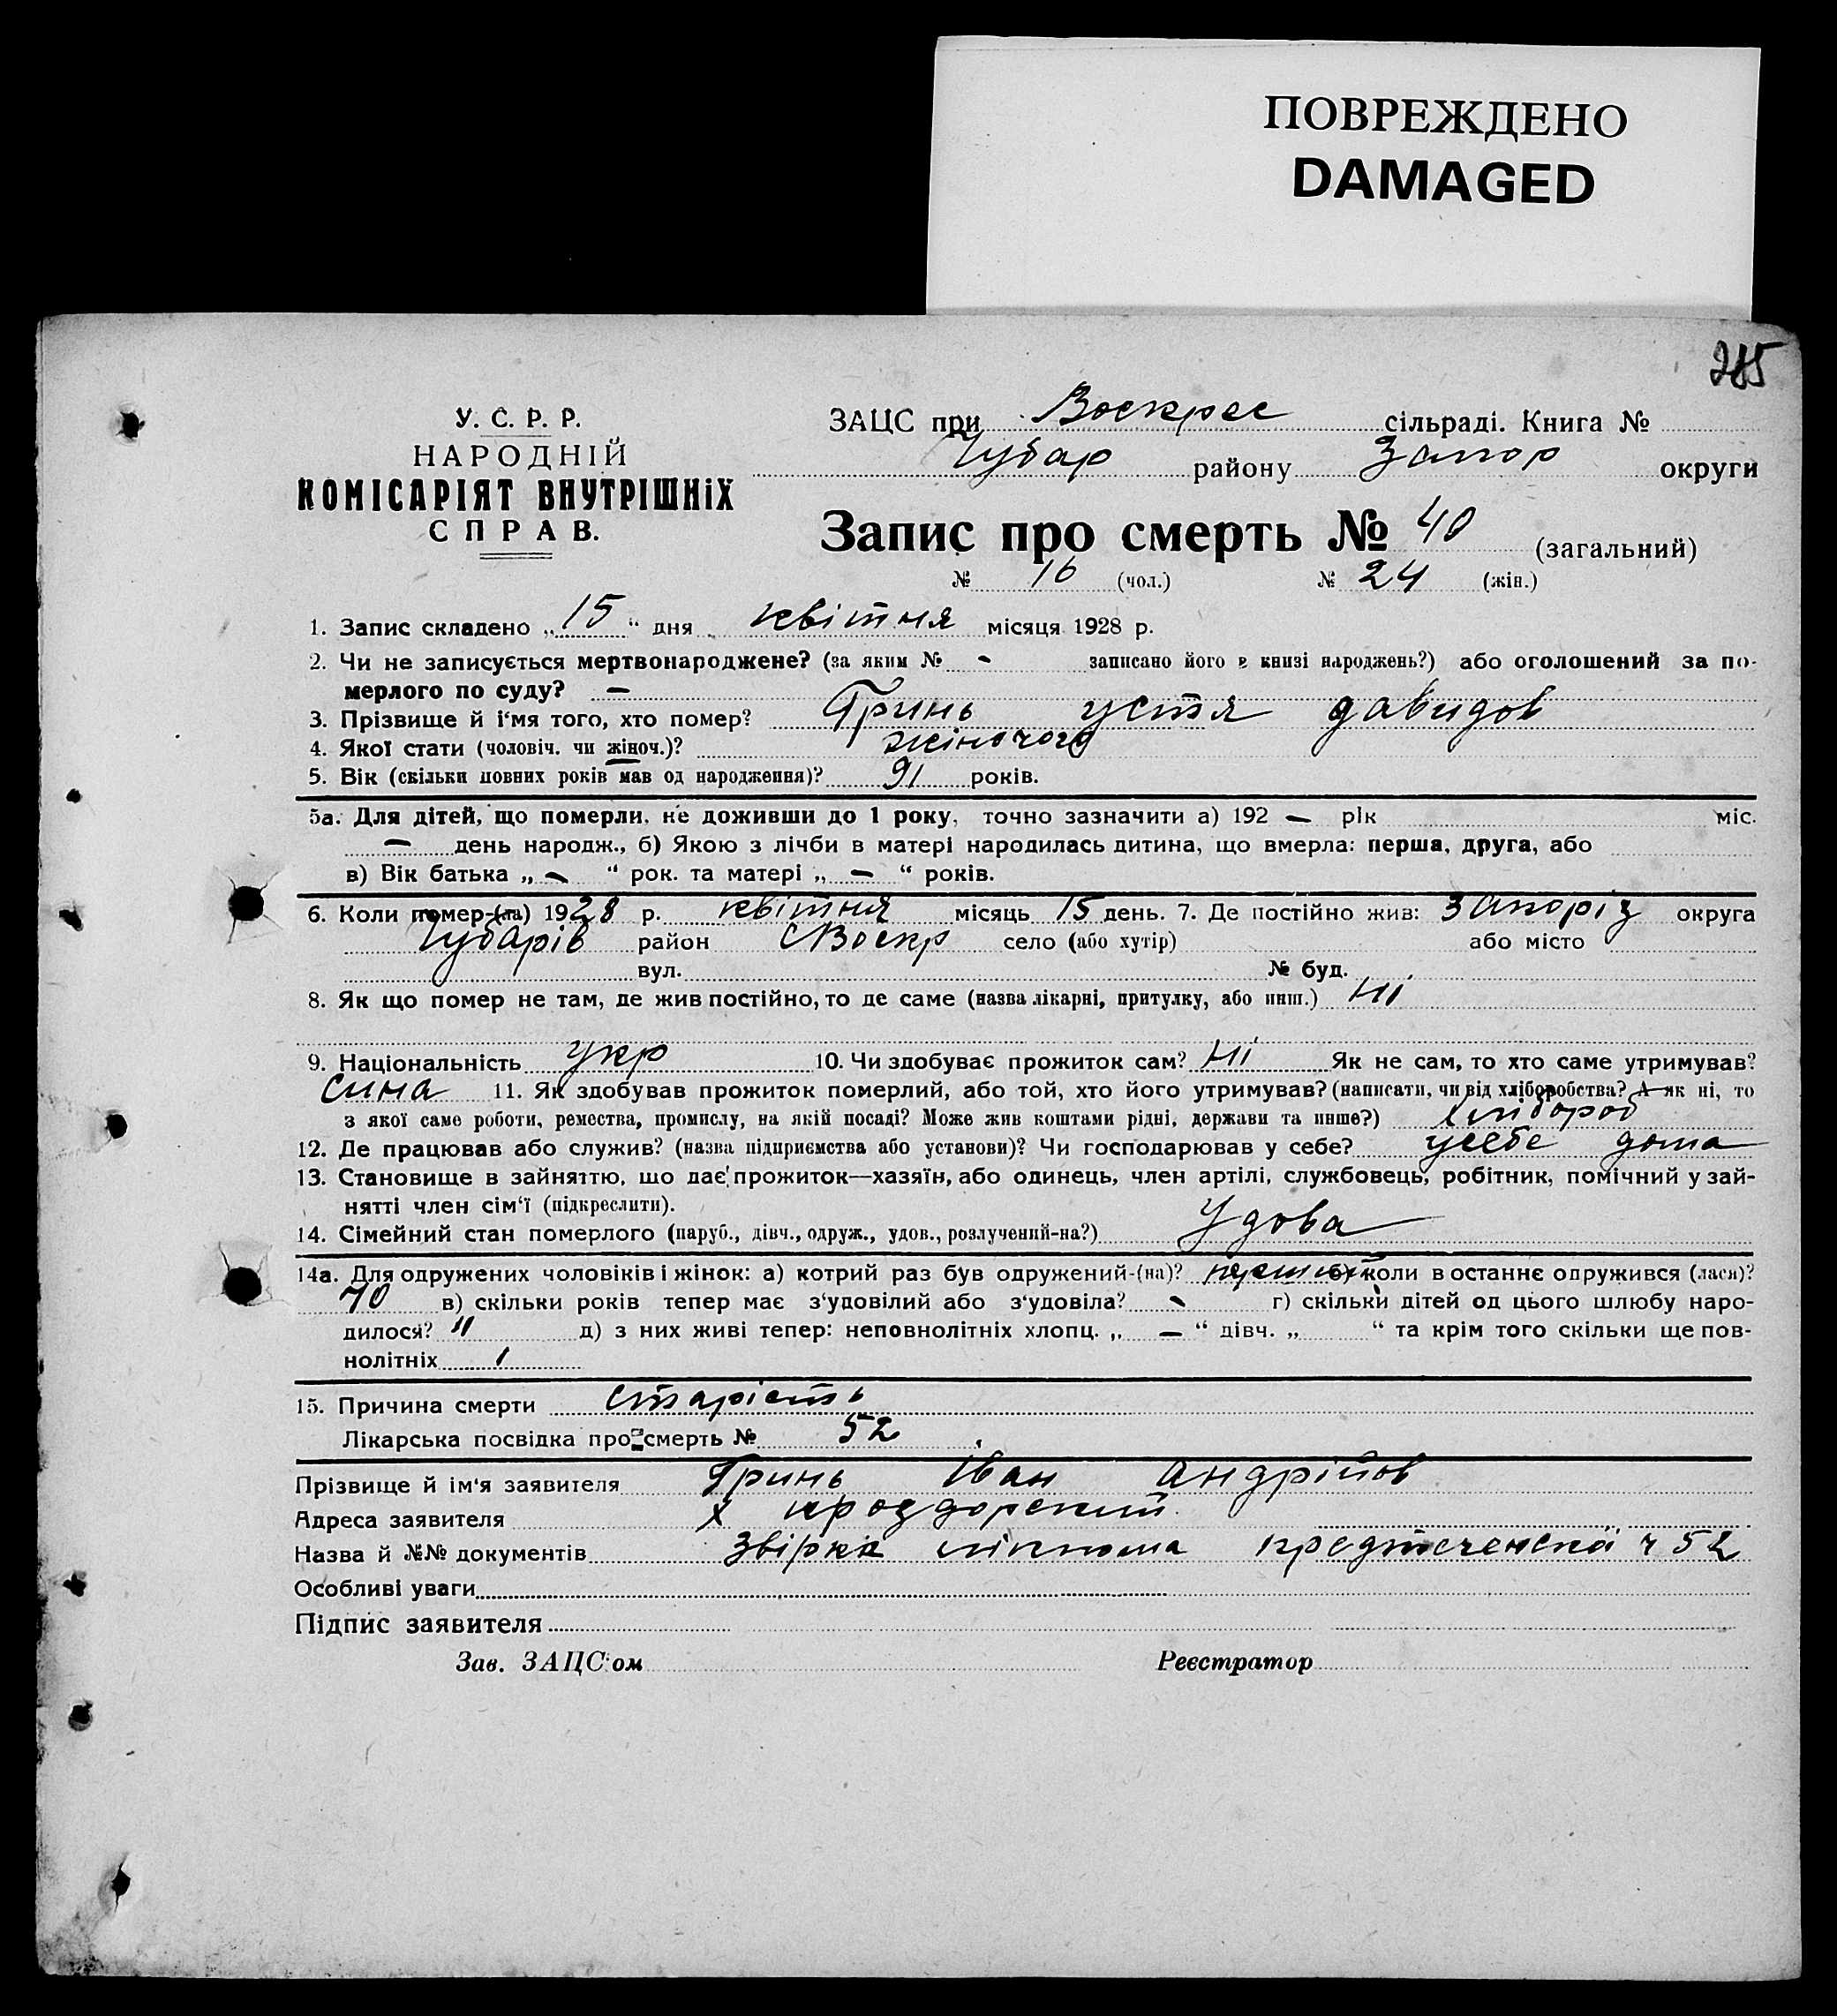 ПОВРЕЖДЕНО
DAMAGED
285
У. С. Р. Р.
НАРОДНІЙ
КОМІСАРІЯТ ВНУТРІШНІХ
СПРАВ.
ЗАЦС при Воскрес сільраді. Книга №
Чубар району Запор округи
Запис про смерть № 40 (загальний)
№ 16 (чол.) № 24 (жін.)
1. Запис складено „15“ дня квітня місяця 1928 р.
2. Чи не записується мертвонароджене? (за яким № - записано його в книзі народжень?) або оголошений за по-
мерлого по суду? —
3. Прізвище й і'мя того, хто помер? Гринь Устя Давидов
4. Якої стати (чоловіч. чи жіноч.)? жіночого
5. Вік (скільки повних років мав од народження)? 91 років.
5а. Для дітей, що померли, не доживши до 1 року, точно зазначити а) 192 — рік міс.
— день народж., б) Якою з лічби в матері народилась дитина, що вмерла: перша, друга, або
в) Вік батька „ - “ рок. та матері „ — “ років.
6. Коли помер-(ла) 1928 р. квітня місяць 15 день. 7. Де постійно жив: Запоріз округа
Чубарів район с Воскр село (або хутір) або місто
вул. № буд.
8. Як що помер не там, де жив постійно, то де саме (назва лікарні, притулку, або инш.) Ні
9. Національність Укр 10. Чи здобуває прожиток сам? Ні Як не сам, то хто саме утримував?
сина 11. Як здобував прожиток померлий, або той, хто його утримував? (написати, чи від хліборобства? А як ні, то
з якої саме роботи, ремества, промислу, на якій посаді? Може жив коштами рідні, держави та инше?) хлібороб
12. Де працював або служив? (назва підприємства або установи)? Чи господарював у себе? усебе дома
13. Становище в зайняттю, що дає прожиток—хазяїн, або одинець, член артілі, службовець, робітник, помічний у зай-
нятті член сім'ї (підкреслити).
14. Сімейний стан померлого (паруб., дівч., одруж., удов., розлучений-на?) Удова
14а. Для одружених чоловіків і жінок: а) котрий раз був одружений-(на)? перший б) коли в останнє одружився (лася)?
70 в) скільки років тепер має з'удовілий або з'удовіла? - г) скільки дітей од цього шлюбу наро-
дилося? 11 д) з них живі тепер: неповнолітніх хлопц. „ — “ дівч. „ “ та крім того скільки ще пов-
нолітніх 1
15. Причина смерти старість
Лікарська посвідка про смерть № 52
Прізвище й ім'я заявителя Гринь Іван Андрійов
Адреса заявителя х
Назва й №№ документів Звірка 52
Особливі уваги
Підпис заявителя
Зав. ЗАЦС'ом Реєстратор